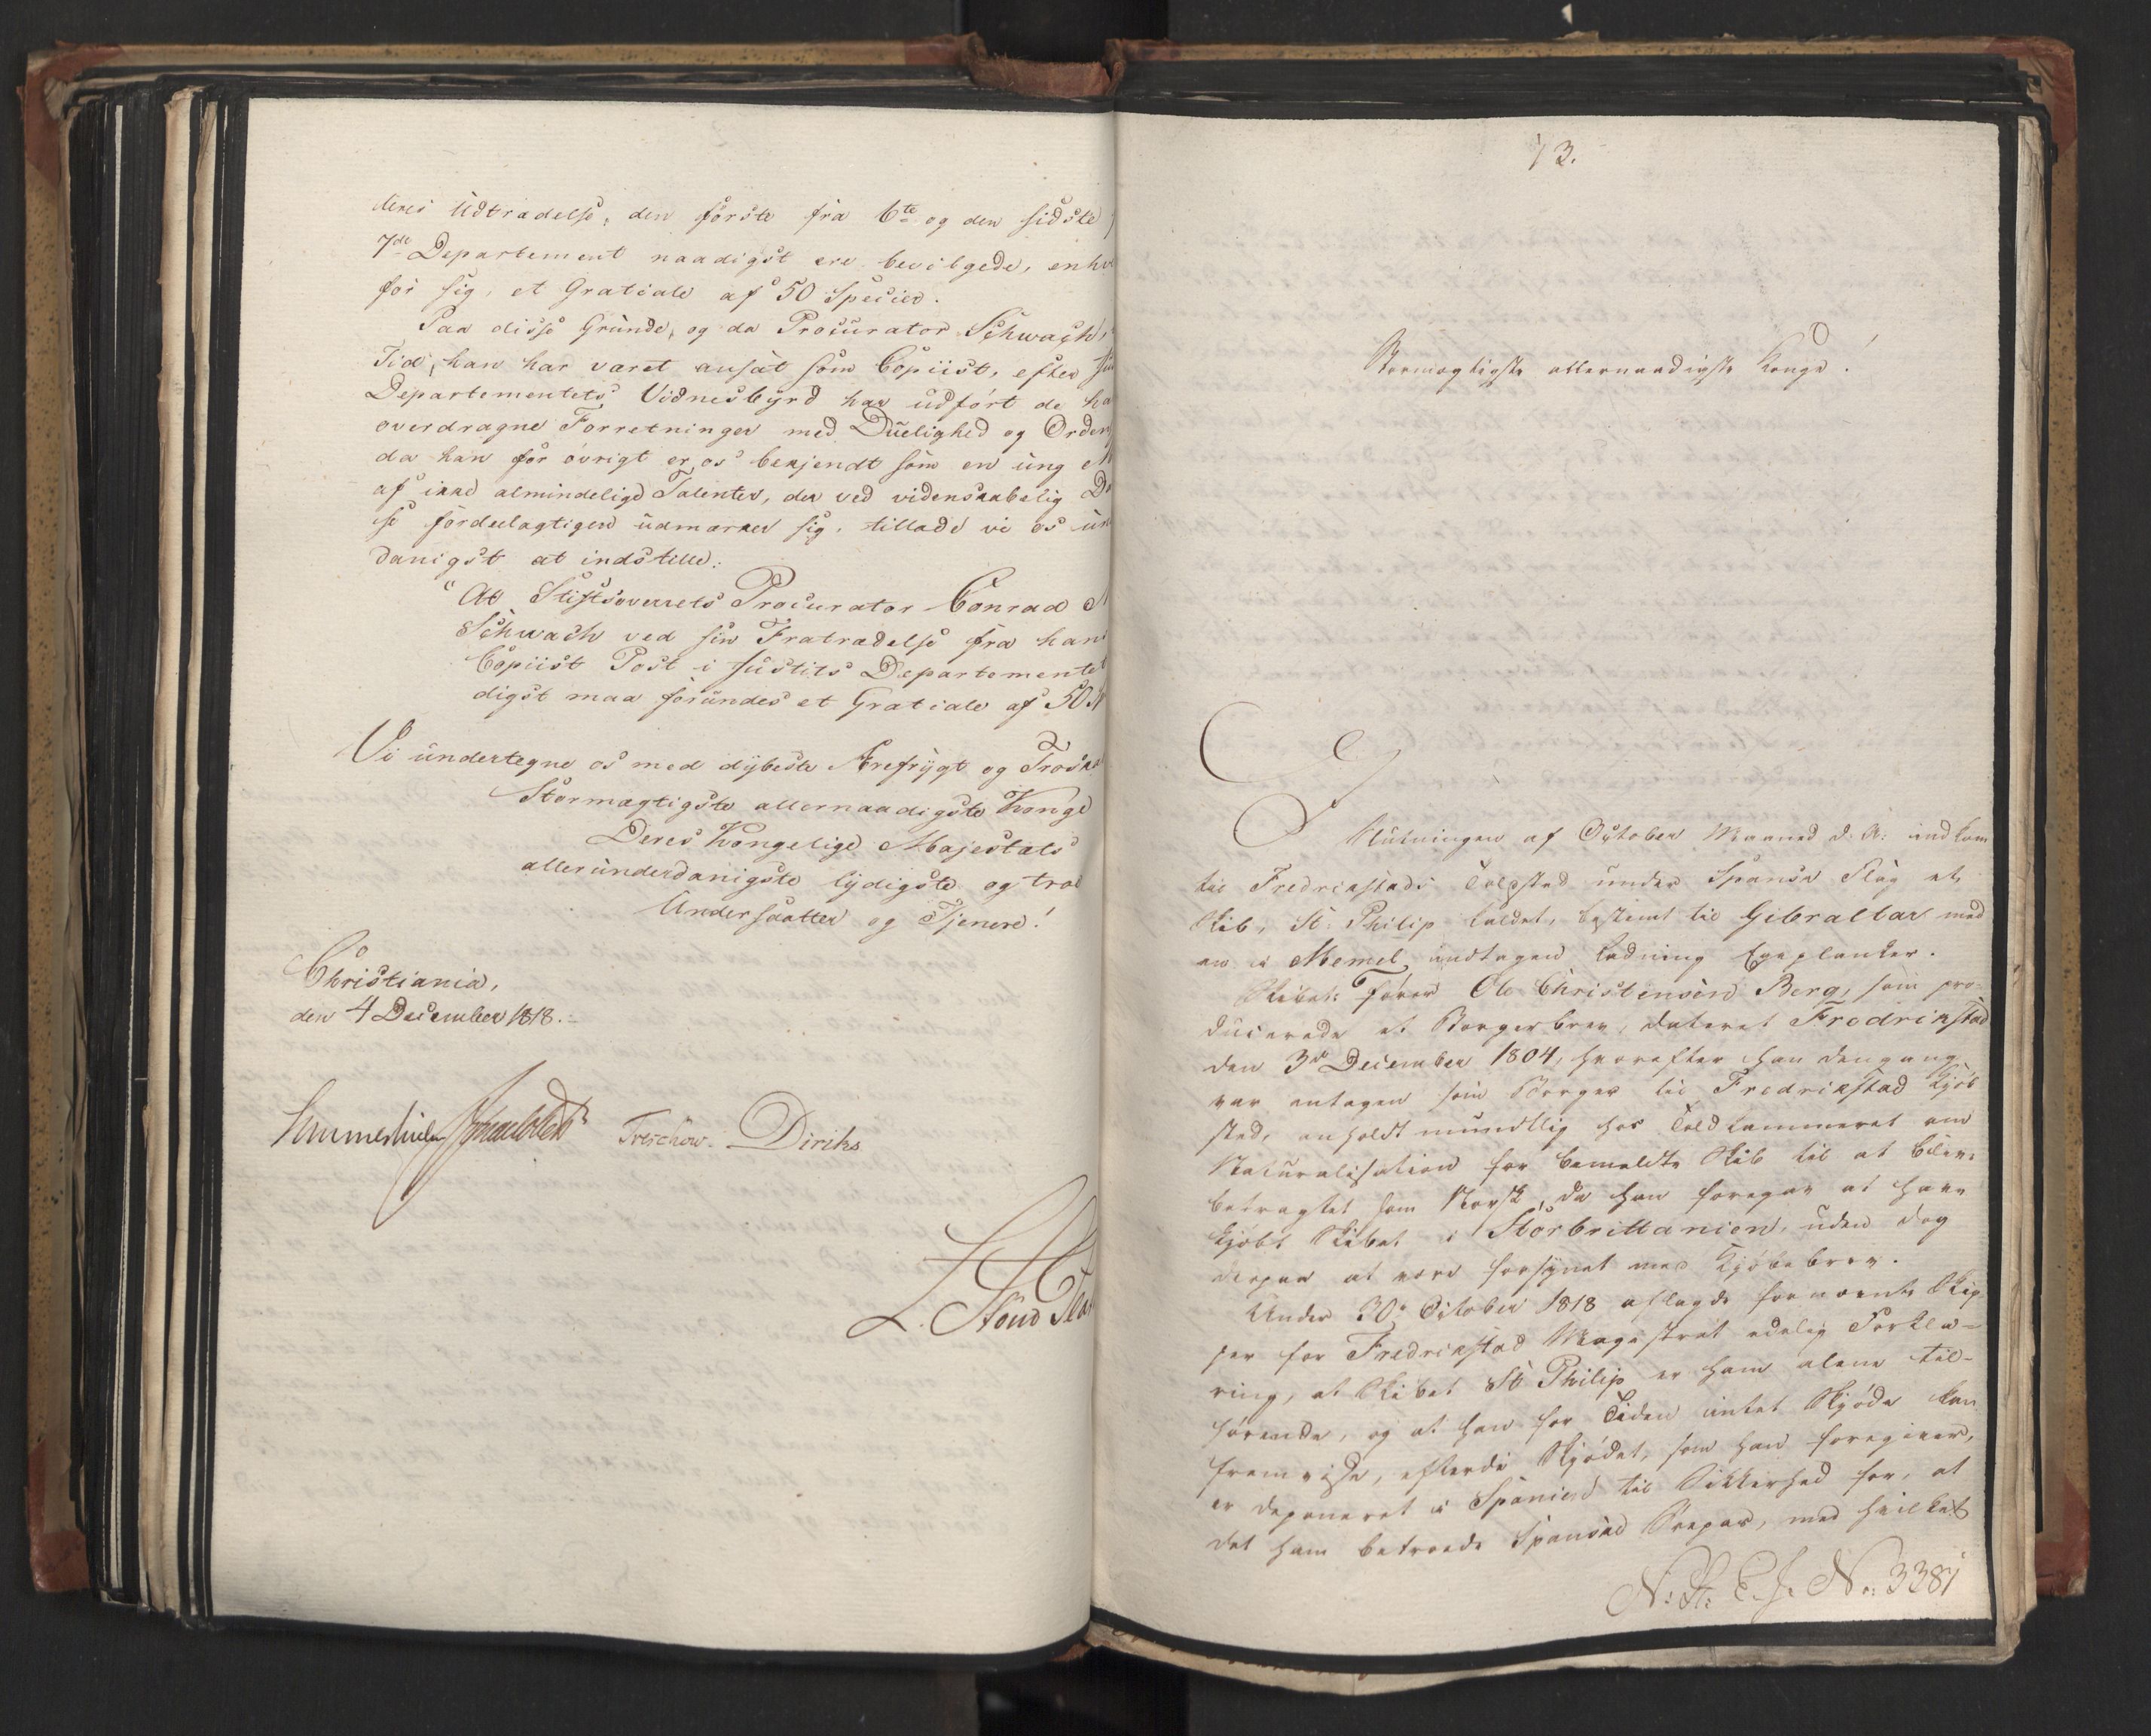 deres Udtrædelse, den förste fra 6te og den sidste
7de Departement naadigst ere bevilgede, enhv
for sig, et Gratiale af 50 Species.
Paa disse Grunde, og da Procurator Schwach,
Tid, han har været ansat som Copiist, efter
Departementets Vidnesbyrd har udført de ha
overdragne Forretninger med Duelighed og Orden,
da han for øvrigt er os bekjendt som en ung M
af ikke almindelige Talenter, der ved videnskabelig Da
se fordeelagtigen udmærker sig, tillade vi os un
danigst at indstille:
"At Stiftsoverrets Procurator Conrad N
Schwach ved sin Fratrædelse fra hans
Copiist Post i Justits Departementet
digst maa forundes et Gratiale af 50
Vi undertegne os med dybeste Ærefrygt og Troska
Stormægtigste allernaadigste Konge
Deres Kongelige Majestæts
allerunderdanigste lydigste og troe
Undersaatter og Tjenere!
Christiania,
den 4 December 1818.
Sommerhielm Treschow. Diriks
L. Stoud Plat
73.
Stormægtigste allernaadigste Konge!
I
Slutningen af October Maaned d. A: indkom
til Fredrikstads Toldsted under Spansk Flag et
Skib, St: Philip kaldet, bestemt til Gibraltar med
en i Memel indtagen Ladning Egeplanker.
Skibets Fører Ole Christensen Berg, som pro-
ducerede et Borgerbrev, dateret Fredrikstad
den 3de December 1804, hvorefter han dengang
var antagen som Borger til Fredrikstad Kjøb
sted, anholdt mundtlig hos Toldkammeret om
Naturalisation for bemeldte Skib til at blive
betragtet som Norsk, da han foregav at have
kjøbt Skibet i Storbrittanien, uden dog
derpaa at være forsynet med Kjøbebrev.
Under 30te October 1818 aflagde fornævnte Skip
per for Fredrikstad Magistrat edelig Forkla-
ring, at Skibet St Philip er ham alene til-
hørende, og at han for Tiden intet Skjøde kan
fremvise, efterdi Skjødet, som han foregiver,
er deponeret i Spanien til Sikkerhed for, at
det ham betroede Spanske Søepas, med hvilket
No: 3381